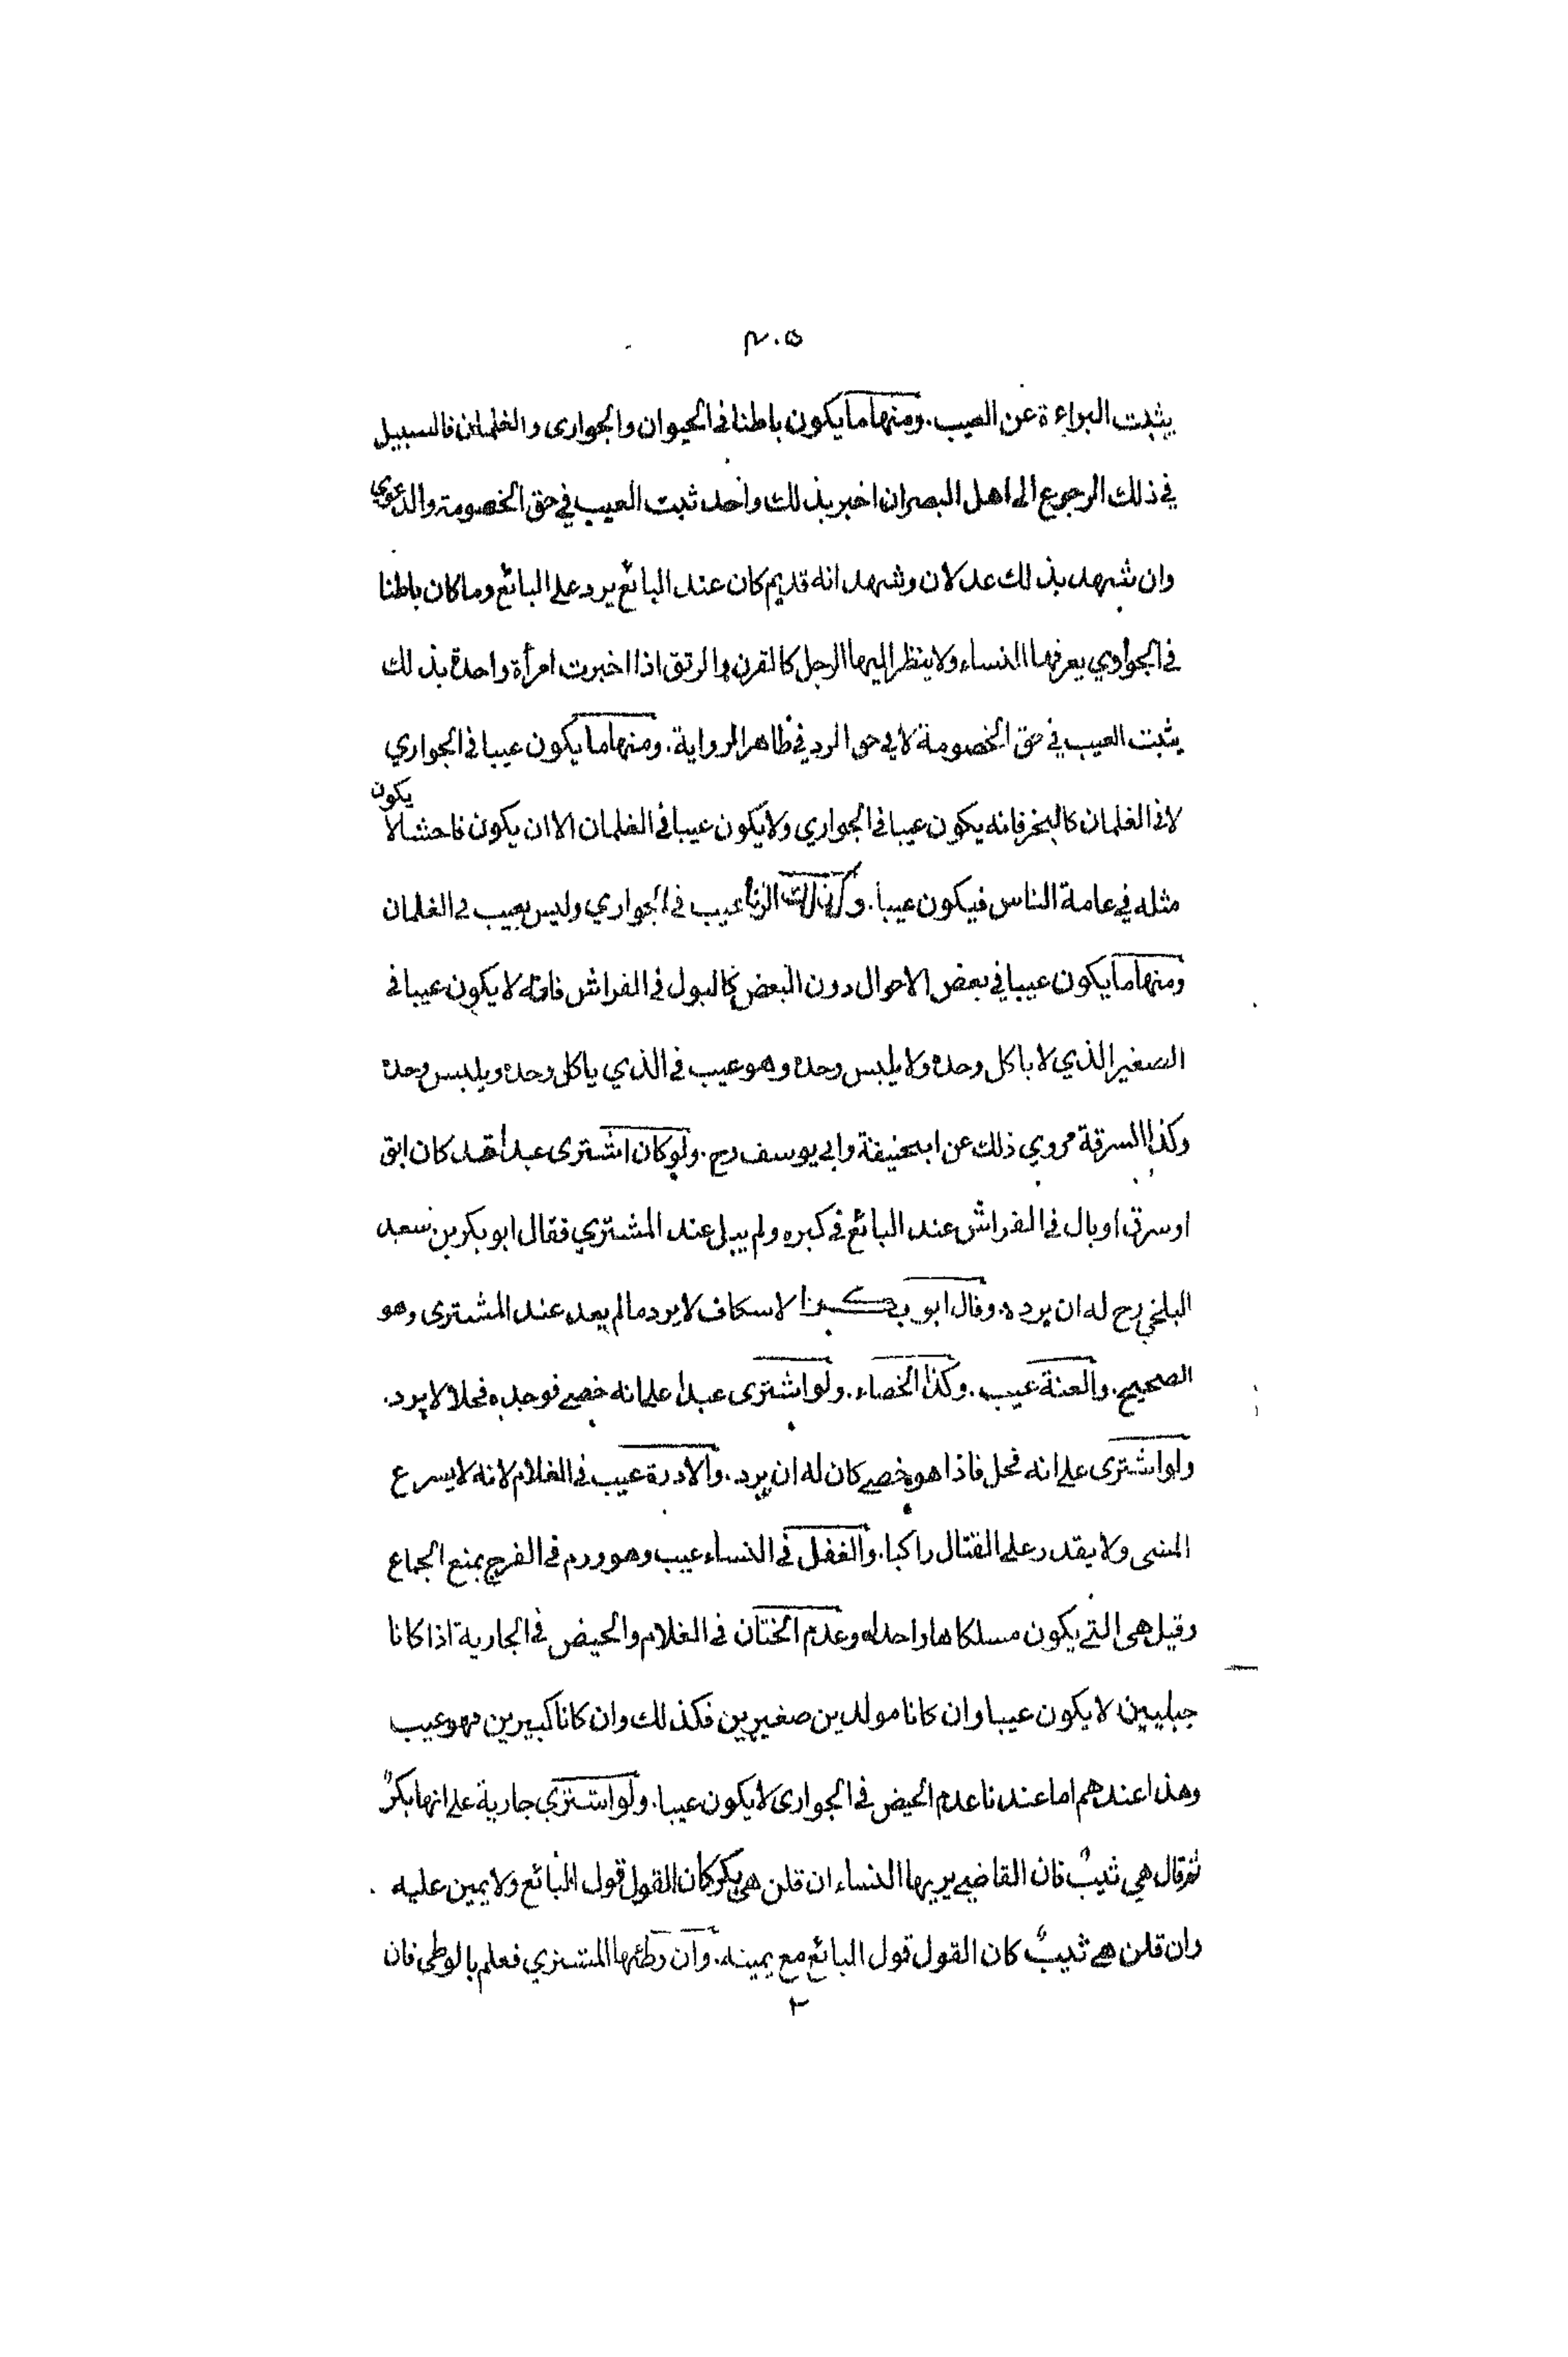 ٢٠٥
يثبت البراءة عن العيب. ومنها ما يكون باطنا في الحيوان والجوارى والغلمان فالسبيل
في ذلك الرجوع الى اهل البصر ان اخبر بذلك واحد ثبت العيب في حق الخصومة والدعوي
وان شهد بذلك عدلان وشهد انه قديم كان عند البائع يرد على البائع وما كان باطنا
في الجواري يعرفها النساء ولا ينظر اليها الرجل كالقرن والرتق اذا اخبرت امرأة واحدة بذلك
يثبت العيب في حق الخصومة لا في حق الرد في ظاهر الرواية. ومنها ما يكون عيبا في الجواري
لا في الغلمان كالبخر فانه يكون عيبا في الجواري ولا يكون عيبا في الغلمان الا ان يكون فاحشا لا يكون
مثله في عامة الناس فيكون عيبا. وكذلك الزنا عيب في الجواري وليس بعيب في الغلمان
ومنها ما يكون عيبا في بعض الاحوال دون البعض كالبول في الفراش فانه لا يكون عيبا في
الصغير الذي لا ياكل وحده ولا يلبس وحده وهو عيب في الذي ياكل وحده ويلبس وحده
وكذا السرقة مروي ذلك عن ابيحنيفة وابي يوسف رح. ولو كان اشترى عبدا قد كان ابق
او سرق او بال في الفراش عند البائع في كبره ولم يبل عند المشتري فقال ابو بكر بن سعد
البلخي رح له ان يرده. وقال ابو بكر الاسكاف لا يرد ما لم يعد عند المشترى وهو
الصحيح. والعنة عيب. وكذا الخصاء. ولو اشترى عبدا على انه خصي فوجده فحلا لا يرد.
ولو اشترى على انه فحل فاذا هو خصي كان له ان يرد. والادرة عيب في الغلام لانه لا يسرع
المشى ولا يقدر على القتال راكبا. والغفل في النساء عيب وهو ورم في الفرج يمنع الجماع
وقيل هى التي يكون مسلكاها واحدا. وعدم الختان في الغلام والحيض في الجارية اذا كانا
جبليين لا يكون عيبا وان كانا مولدين صغيرين فكذلك وان كانا كبيرين فهو عيب
وهذا عندهم اما عندنا عدم الحيض في الجوارى لا يكون عيبا. ولو اشتري جارية على انها بكرٌ
ثم قال هي ثيبٌ فان القاضي يريها النساء ان قلن هى بكر كان القول قول البائع ولا يمين عليه
وان قلن هي ثيبٌ كان القول قول البائع مع يمينه. وان وطئها المشتري فعلم بالوطى فان
٢